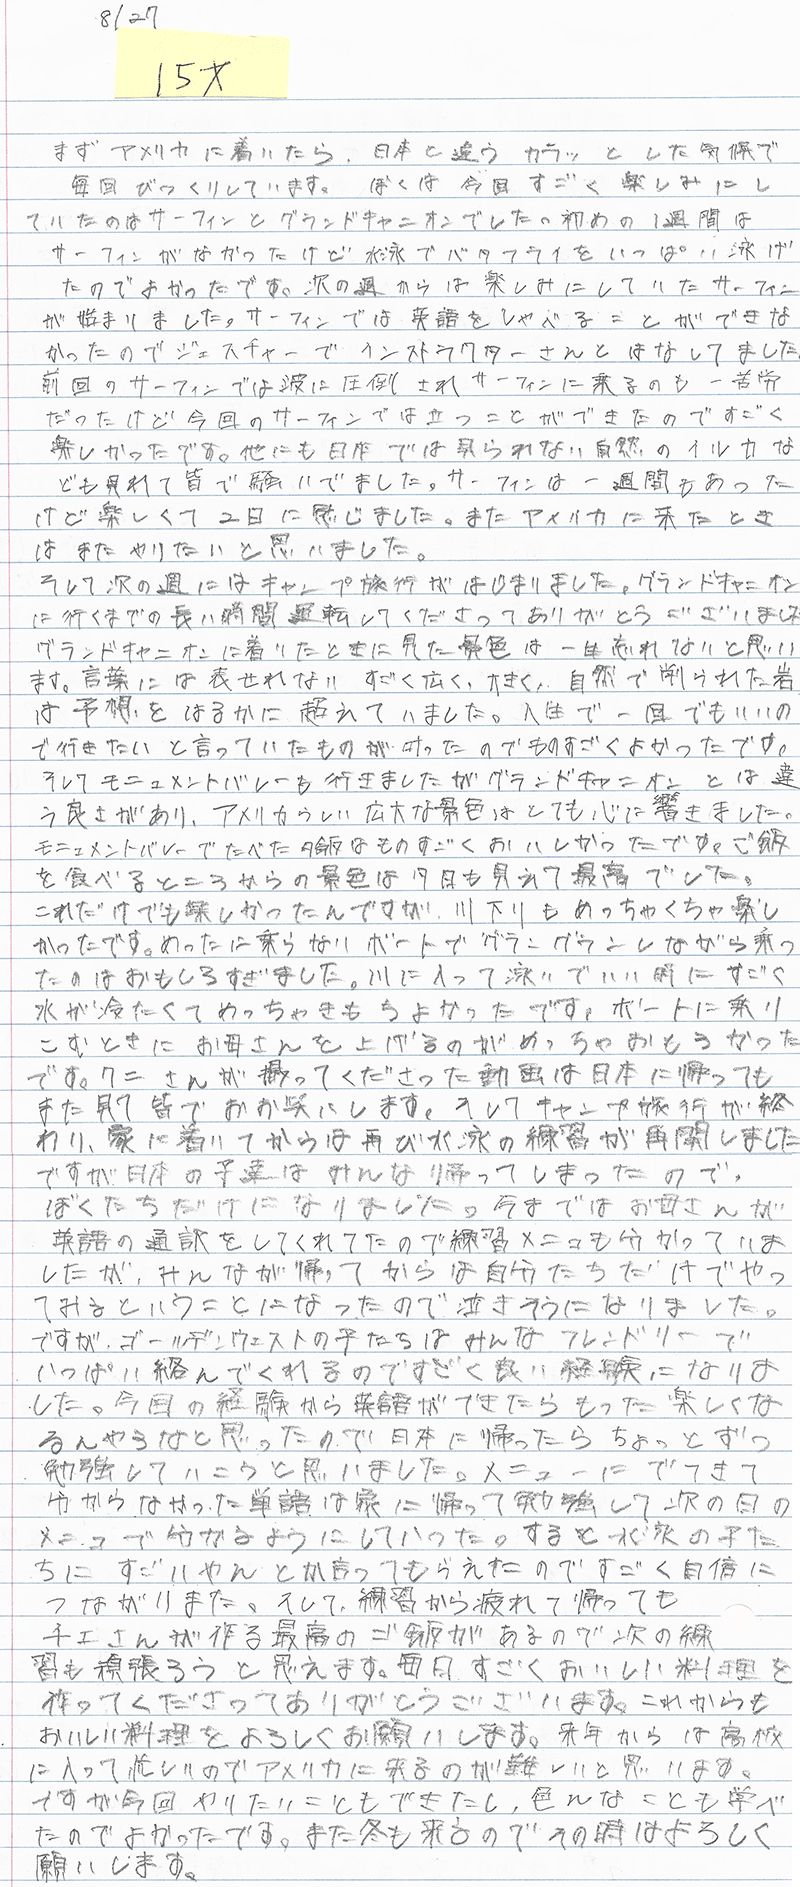 8/27
15才
まずアメリカに着いたら、日本と違うカラッとした気候で
毎回びっくりしています。ぼくは今回すごく楽しみにし
ていたのはサーフィンとグランドキャニオンでした。初めの1週間は
サーフィンがなかったけど水泳でバタフライをいっぱい泳げ
たのでよかったです。次の週からは楽しみにしていたサーフィン
が始まりました。サーフィンでは英語をしゃべることができな
かったのでジェスチャーでインストラクターさんとはなしてました。
前回のサーフィンでは波に圧倒されサーフィンに乗るのも一苦労
だったけど今回のサーフィンでは立つことができたのですごく
楽しかったです。他にも日本では見られない自然のイルカな
ども見れて皆で騒いでました。サーフィンは一週間もあった
けど楽しくて2日に感じました。またアメリカに来たとき
はまたやりたいと思いました。
そして次の週にはキャンプ旅行がはじまりました。グランドキャニオン
に行くまでの長い時間運転してくださってありがとうございました
グランドキャニオンに着いたときに見た景色は一生忘れないと思い
ます。言葉には表せれないすごく広く、大きく、自然で削られた岩
は予想をはるかに超えていました。人生で一回でもいいの
で行きたいと言っていたものが叶ったのでものすごくよかったです。
そしてモニュメントバレーも行きましたがグランドキャニオンとは違
う良さがあり、アメリカらしい広大な景色はとても心に響きました。
モニュメントバレーでたべた夕飯はものすごくおいしかったです。ご飯
を食べるところからの景色は夕日も見えて最高でした。
これだけでも楽しかったんですが、川下りもめっちゃくちゃ楽し
かったです。めったに乗らないボートでグラングランしながら乗っ
たのはおもしろすぎました。川に入って泳いでいい時にすごく
水が冷たくてめっちゃきもちよかったです。ボートに乗り
こむときにお母さんを上げるのがめっちゃおもろかった
です。クニさんが撮ってくださった動画は日本に帰っても
また見て皆でおお笑いします。そしてキャンプ旅行が終
わり、家に着いてからは再び水泳の練習が再開しました
ですが日本の子達はみんな帰ってしまったので、
ぼくたちだけになりました。今まではお母さんが
英語の通訳をしてくれてたので練習メニュも分かっていま
したが、みんなが帰ってからは自分たちだけでやっ
てみるということになったので泣きそうになりました。
ですが、ゴールデンウェストの子たちはみんなフレンドリーで
いっぱい絡んでくれるのですごく良い経験になりま
した。今回の経験から英語ができたらもった楽しくな
るんやろなと思ったので日本に帰ったらちょっとずつ
勉強していこうと思いました。メニューにでてきて
分からなかった単語は家に帰って勉強して次の日の
メニュで分かるようにしていった。すると水泳の子た
ちにすごいやんとか言ってもらえたのですごく自信に
つながりまた。そして、練習から疲れて帰っても
チエさんが作る最高のご飯があるので次の練
習も頑張ろうと思えます。毎日すごくおいしい料理を
作ってくださってありがとうございます。これからも
おいしい料理をよろしくお願いします。来年からは高校
に入って忙しいのでアメリカに来るのが難しいと思います。
ですが今回やりたいこともできたし、色んなことも学べ
たのでよかったです。また冬も来るのでその時はよろしく
願いします。